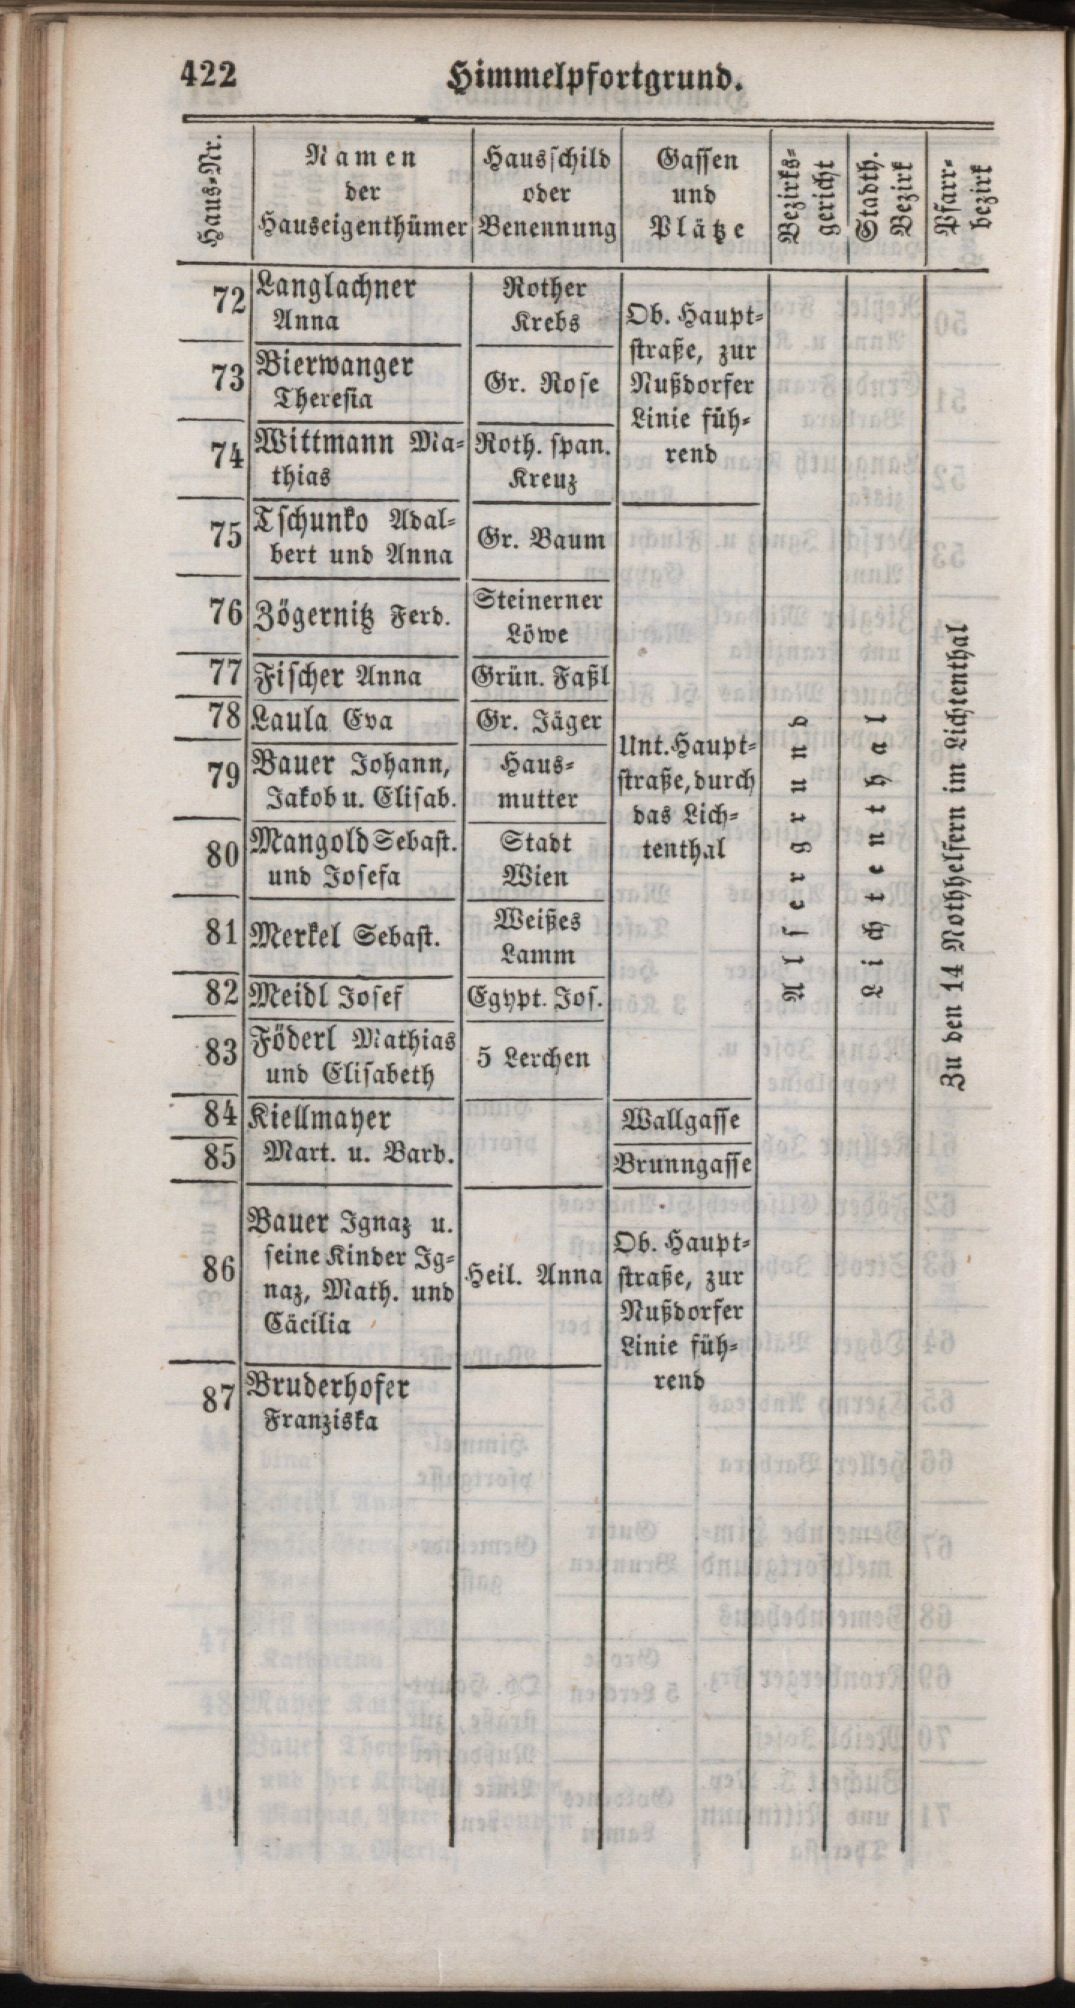 422 Himmelpfortgrund.
Haus-Nr.
Namen
der
Hauseigenthümer
Hausschild
oder
Benennung
Gassen
und
Plätze
Bezirks-
gericht
Stadth.
Bezirk
Pfarr-
bezirk
72 Langlachner
Anna
Rother
Krebs
73 Bierwanger
Theresia
Gr. Rose
74 Wittmann Ma-
thias
Roth. span.
Kreuz
Ob. Haupt-
straße, zur
Nußdorfer
Linie füh-
rend
75 Tschunko Adal-
bert und Anna
Gr. Baum
76 Zögernitz Ferd.
Steinerner
Löwe
77 Fischer Anna Grün. Faßl
78 Laula Eva Gr. Jäger
79 Bauer Johann,
Jakob u. Elisab.
Haus-
mutter
80 Mangold Sebast.
und Josefa
Stadt
Wien
81 Merkel Sebast.
Weißes
Lamm
82 Meidl Josef Egypt. Jos.
83 Föderl Mathias
und Elisabeth
5 Lerchen
Unt. Haupt-
straße, durch
das Lich-
tenthal
84 Kiellmayer Wallgasse
85 Mart. u. Barb. Brunngasse
86 Bauer Ignaz u.
seine Kinder Ig-
naz, Math. und
Cäcilia
Heil. Anna
87 Bruderhofer
Franziska
Ob. Haupt-
straße, zur
Nußdorfer
Linie füh-
rend
Alsergrund
Lichtenthal
Zu den 14 Nothhelfern im Lichtenthal